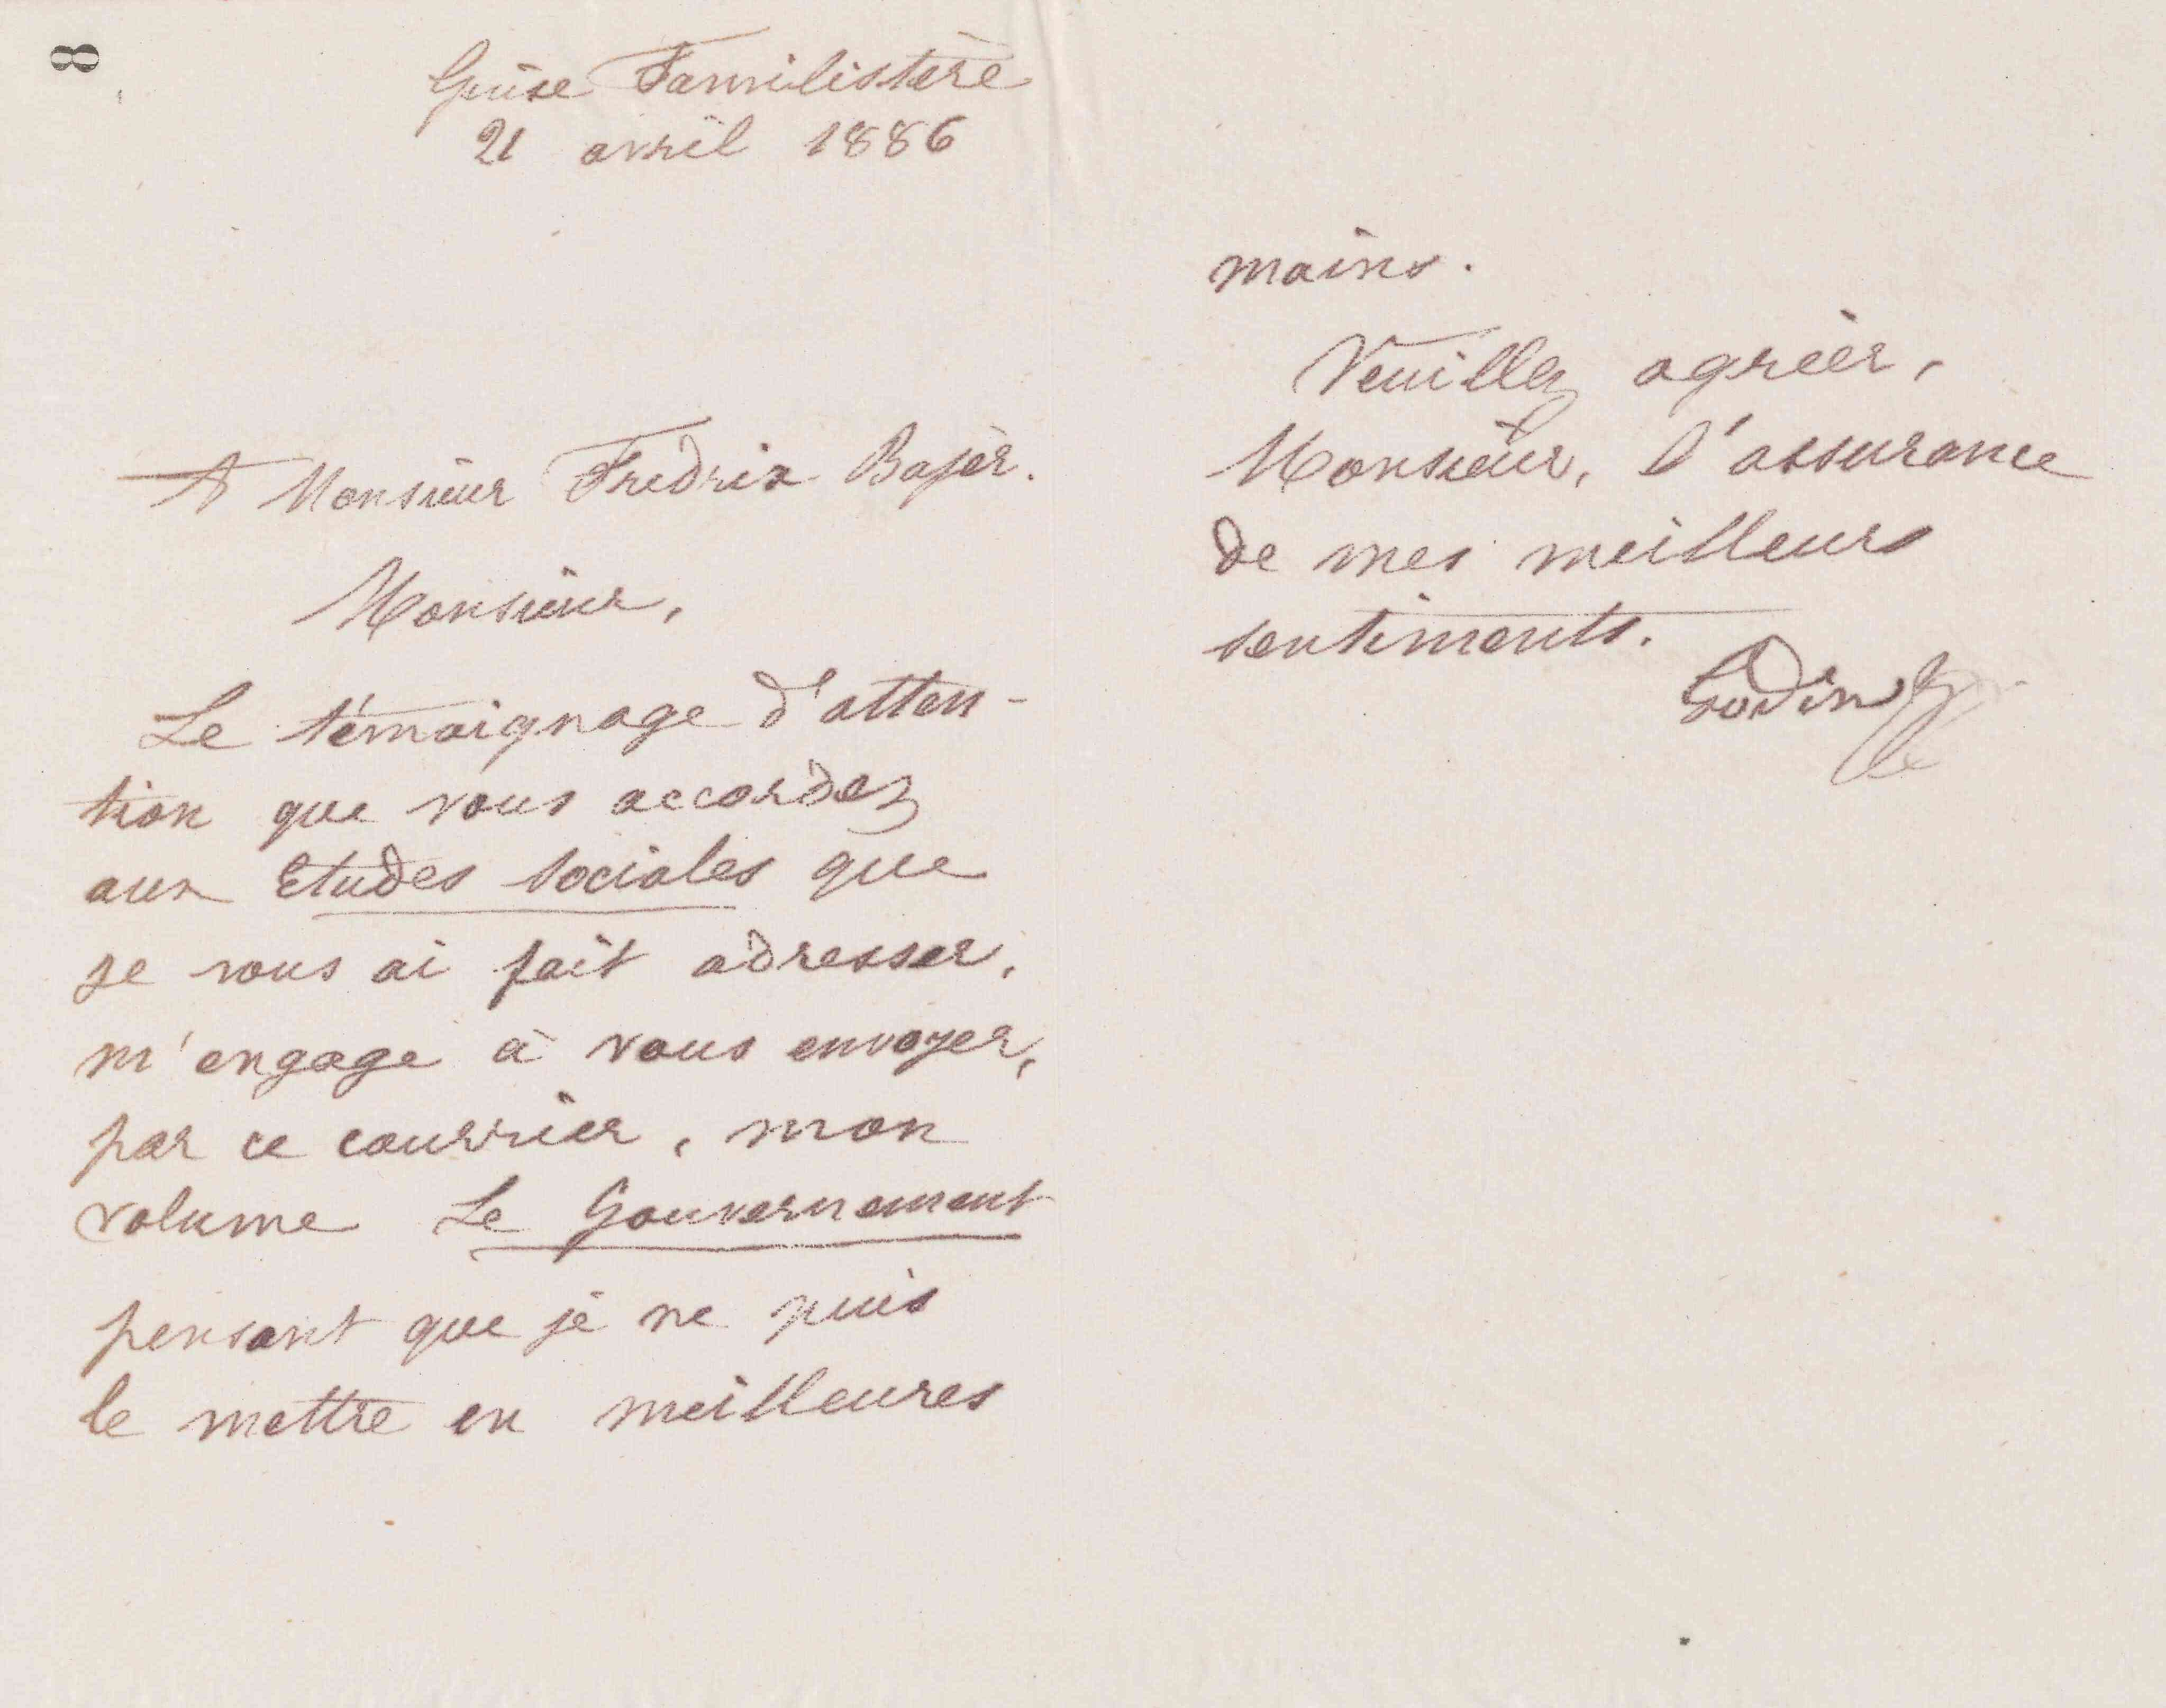 8
Guise Familistère
21 avril 1886
A Monsieur Fredrix Bajer.
Monsieur,
Le témoignage d'atten-
tion que vous accordez
aux Etudes sociales que
je vous ai fait adresser,
m'engage à vous envoyer,
par ce courrier, mon
volume Le Gouvernement
pensant que je ne puis
le mettre en meilleures
mains.
Veuillez agréer,
Monsieur, l'assurance
de mes meilleurs
sentiments.
Godin